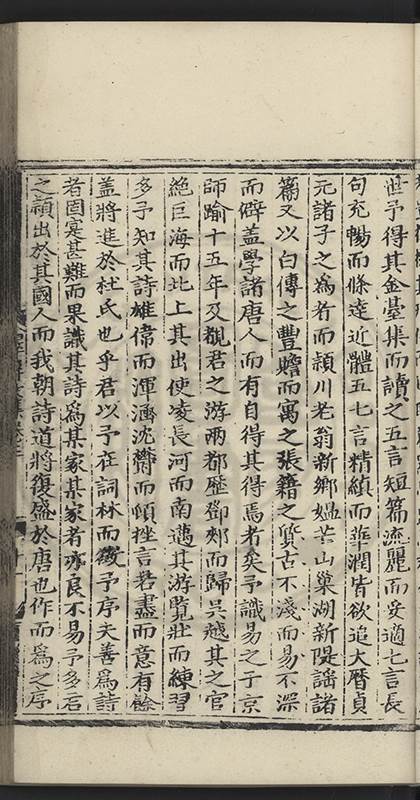 世予得其金臺集而讀之五言短篇流麗而妥適七言長
句充暢而條達近體五七言精縝而華潤皆欲追大曆貞
元諸子之為者而潁川老翁新鄉媼芒山巢湖新隄謠諸
篇又以白傅之豐贍而寓之張籍之質古不淺而易不深
而僻蓋學諸唐人而有自得其得焉者矣予識易之于京
師踰十五年及觀君之游兩都歷鄧郟而歸吳越其之官
絕巨海而北上其出使凌長河而南邁其游覽壯而練習
多予知其詩雄偉而渾涵沈鬱而頓挫言若盡而意有餘
蓋將進於杜氏也乎君以予在詞林而徵予序夫善為詩
者固寔甚難而果識其詩為某家某家者亦良不易予多君
之穎出於其國人而我朝詩道將復盛於唐也作而為之序